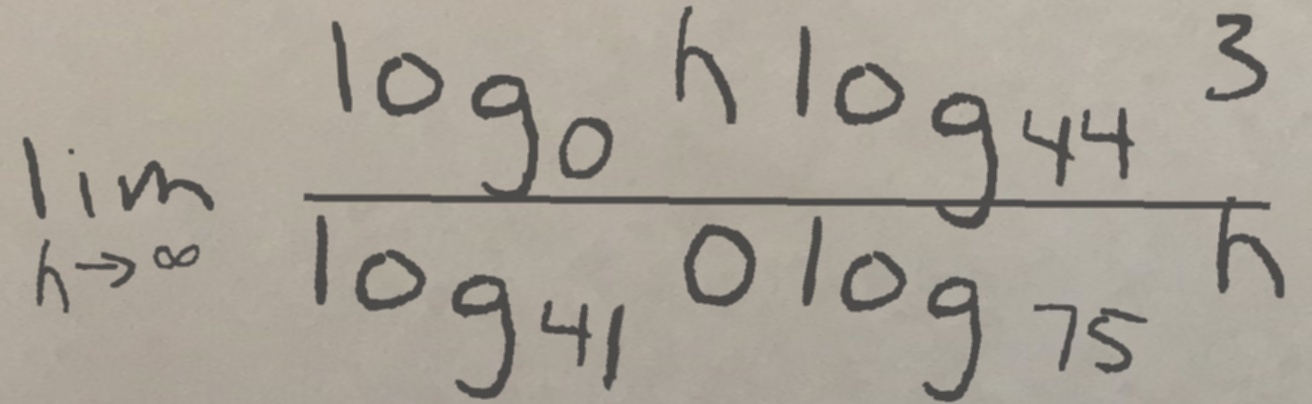 \lim_{h \to \infty} \frac{\log_{0} h \log_{44} 3}{\log_{41} 0 \log_{75} h}